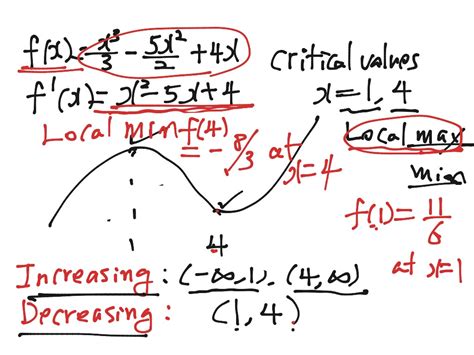 f(x) = x³/3 - 5x²/2 + 4x
f'(x) = x² - 5x + 4
Critical values
x = 1, 4
Local min f(4)
= -8/3 at
x = 4
Local max
min
f(1) = 11/6
at x=1
4
Increasing : (-∞, 1), (4, ∞)
Decreasing : (1, 4)